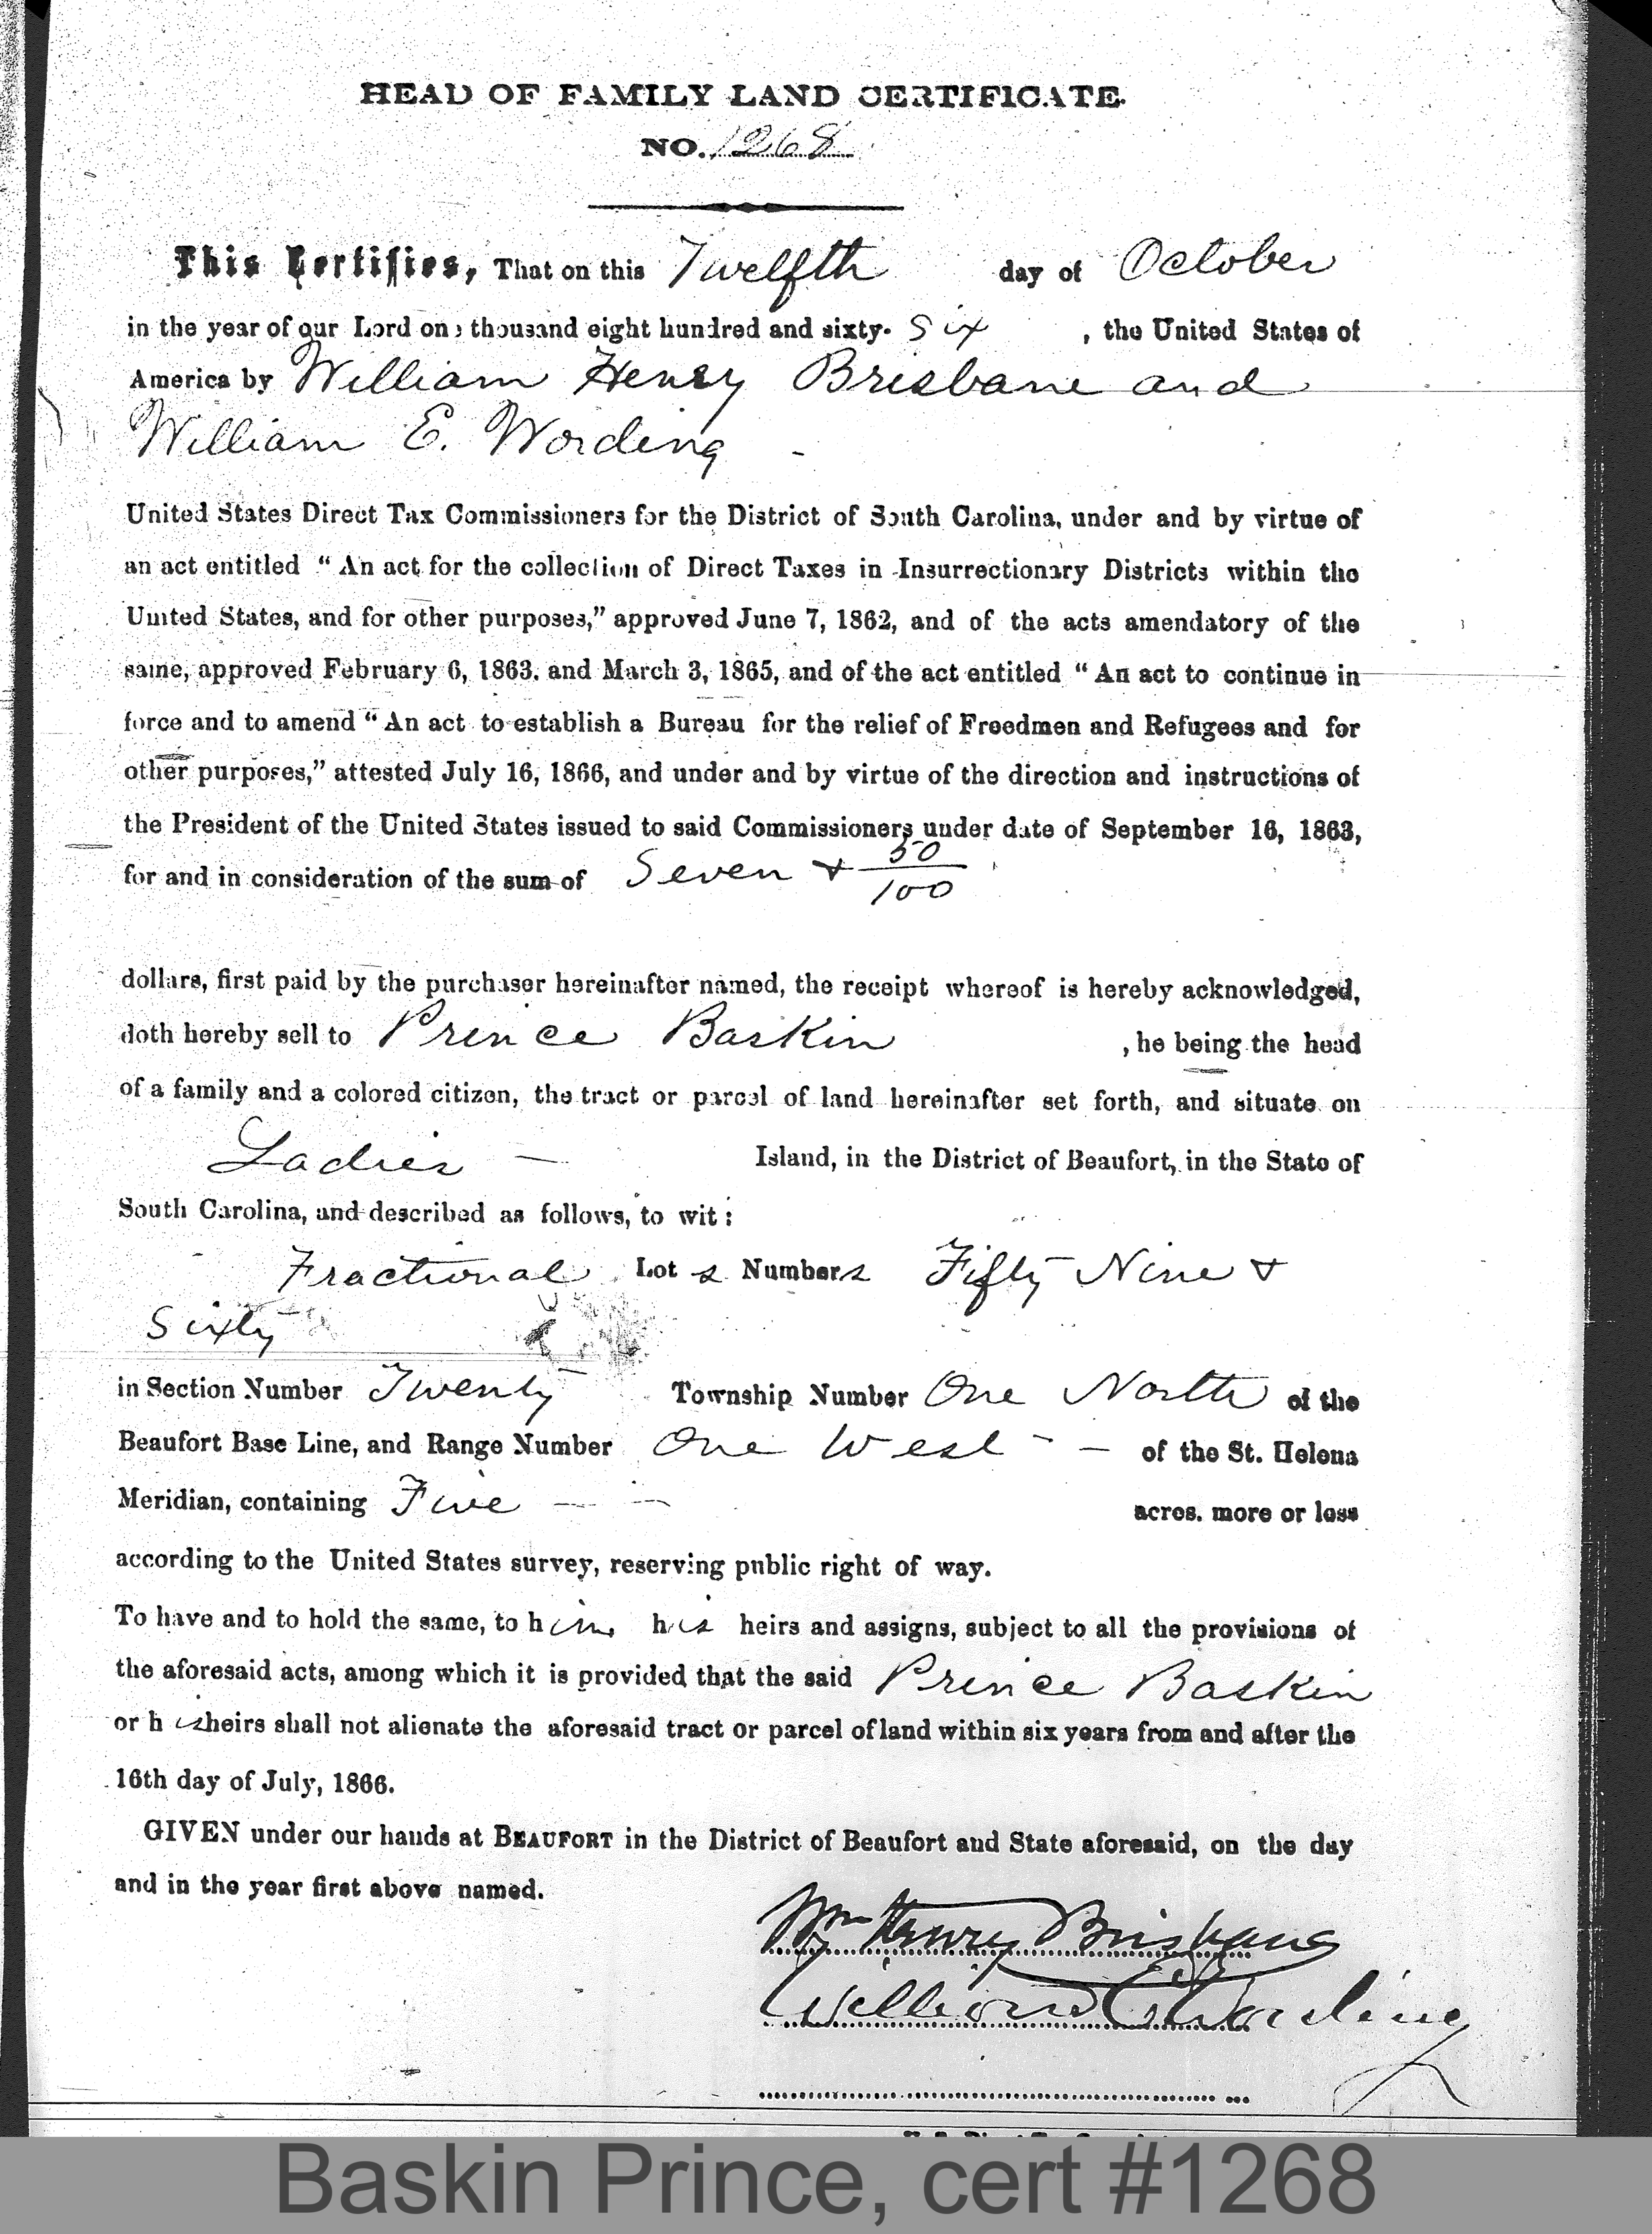 HEAD OF FAMILY LAND CERTIFICATE.
NO. 1268
This Certifies, That on this Twelfth day of October
in the year of our Lord one thousand eight hundred and sixty- Six , the United States of
America by William Henry Brisbane and
William E. Wording -
United States Direct Tax Commissioners for the District of South Carolina, under and by virtue of
an act entitled “An act for the collection of Direct Taxes in Insurrectionary Districts within the
United States, and for other purposes,” approved June 7, 1862, and of the acts amendatory of the
same, approved February 6, 1863. and March 3, 1865, and of the act entitled “An act to continue in
force and to amend “An act to establish a Bureau for the relief of Freedmen and Refugees and for
other purposes,” attested July 16, 1866, and under and by virtue of the direction and instructions of
the President of the United States issued to said Commissioners under date of September 16, 1863,
for and in consideration of the sum of Seven & 50/100
dollars, first paid by the purchaser hereinafter named, the receipt whereof is hereby acknowledged,
doth hereby sell to Prince Baskin , he being the head
of a family and a colored citizen, the tract or parcel of land hereinafter set forth, and situate on
Ladies - Island, in the District of Beaufort, in the State of
South Carolina, and described as follows, to wit:
Fractional Lots Numbers Fifty Nine &
Sixty
in Section Number Twenty Township Number One North of the
Beaufort Base Line, and Range Number One West - - of the St. Helena
Meridian, containing Five - - acres. more or less
according to the United States survey, reserving public right of way.
To have and to hold the same, to him, his heirs and assigns, subject to all the provisions of
the aforesaid acts, among which it is provided that the said Prince Baskin
or his heirs shall not alienate the aforesaid tract or parcel of land within six years from and after the
16th day of July, 1866.
GIVEN under our hands at BEAUFORT in the District of Beaufort and State aforesaid, on the day
and in the year first above named.
Wm Henry Brisbane
William E. Wording
Baskin Prince, cert #1268